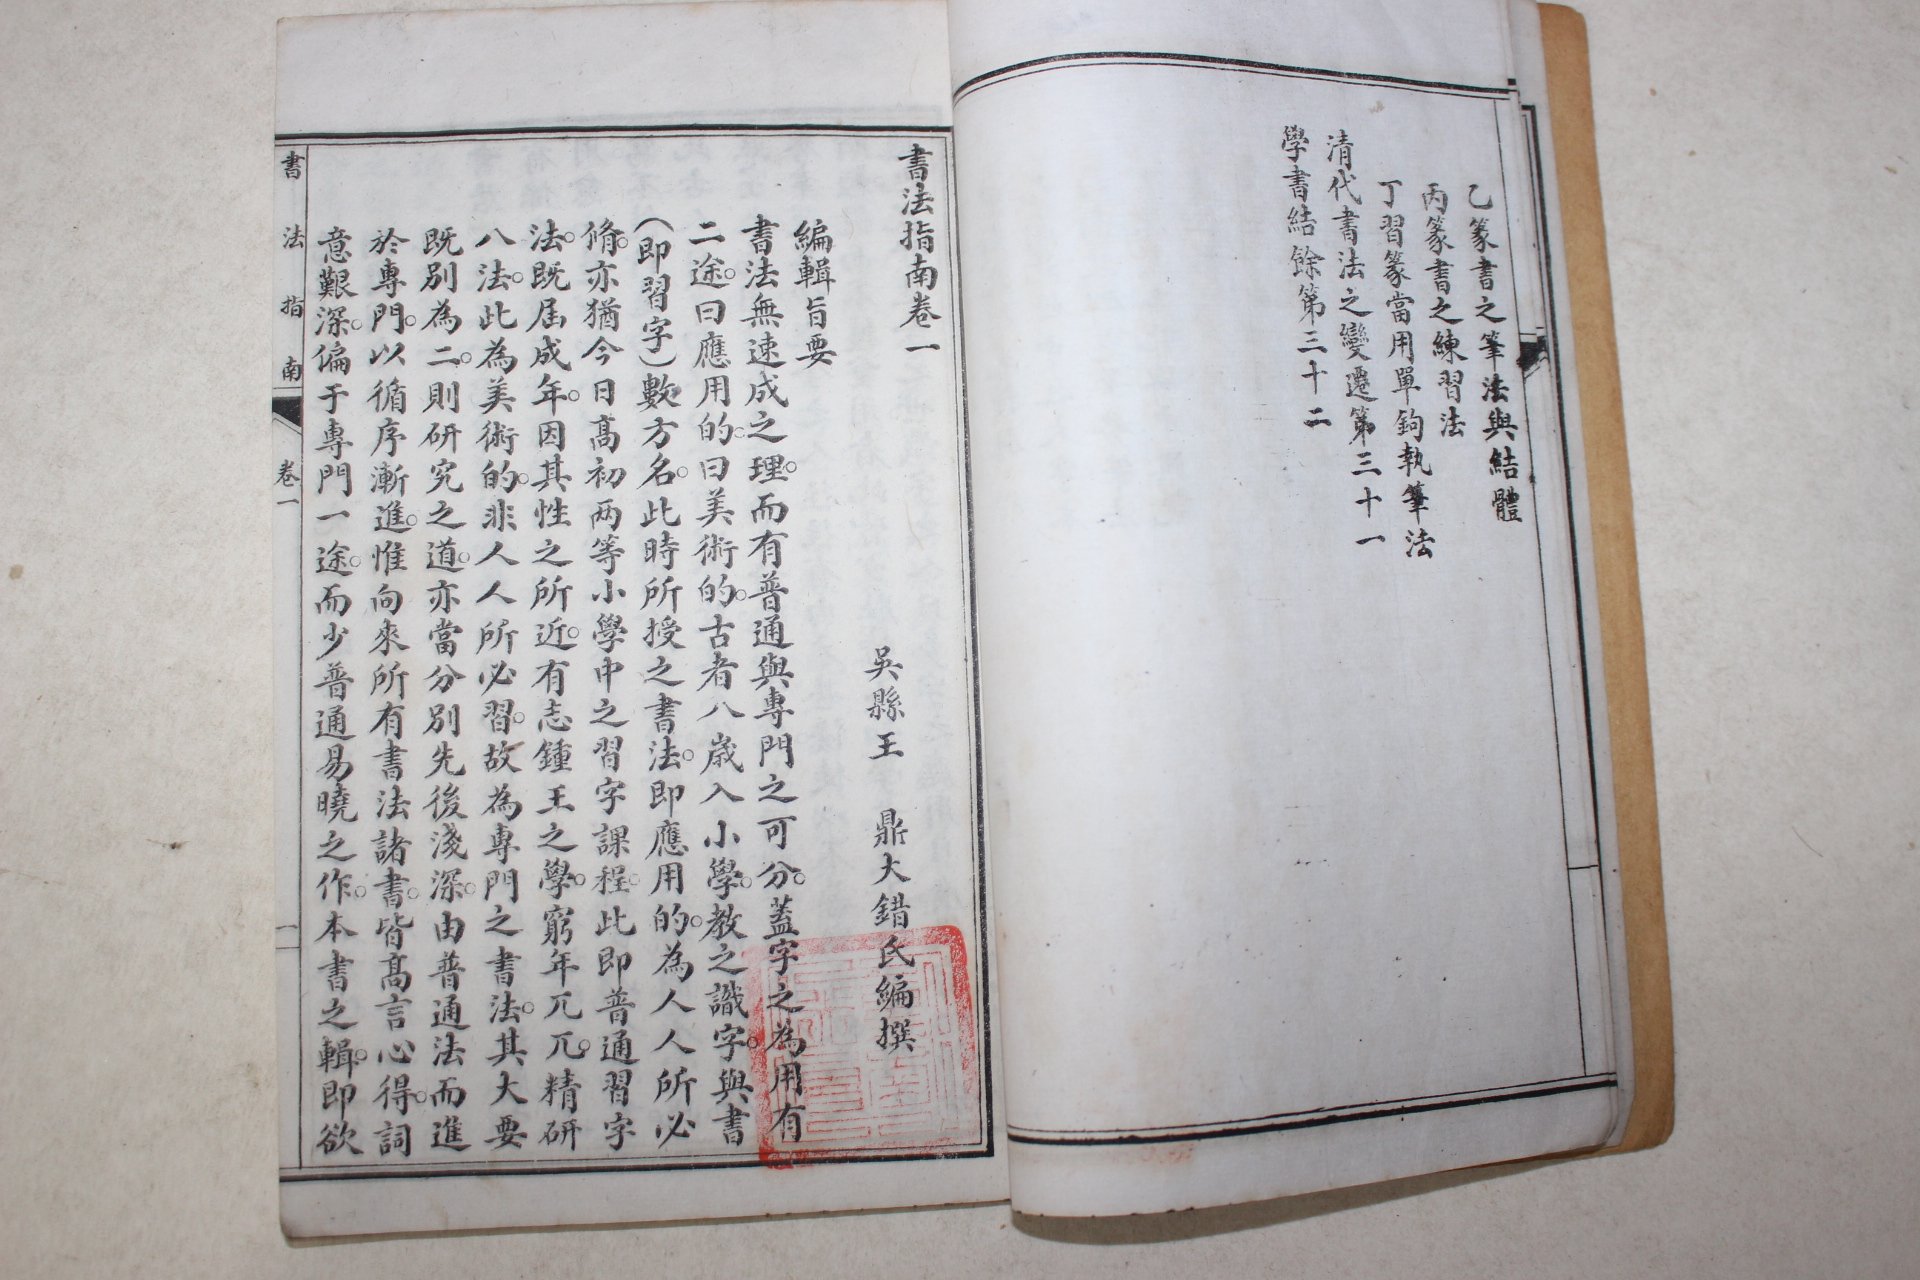 乙篆書之筆法與結體
丙篆書之練習法
丁習篆當用單鉤執筆法
清代書法之變遷第三十一
學書結餘第三十二
書法指南卷一
吳縣王 鼎大錯氏編撰
編輯旨要
書法無速成之理。而有普通與專門之可分。蓋字之為用有
二途。曰應用的。曰美術的。古者八歲入小學。教之識字。與書
(即習字)數方名。此時所授之書法。即應用的。為人人所必
脩。亦猶今日高初两等小學中之習字課程。此即普通習字
法。既屆成年。因其性之所近。有志鍾王之學。窮年兀兀。精研
八法。此為美術的。非人人所必習。故為專門之書法。其大要
既別為二。則研究之道。亦當分別先後淺深。由普通法而進
於專門。以循序漸進。惟向來所有書法諸書。皆高言心得。詞
意艱深。偏于專門一途。而少普通易曉之作。本書之輯。即欲
書法指南 卷一 一